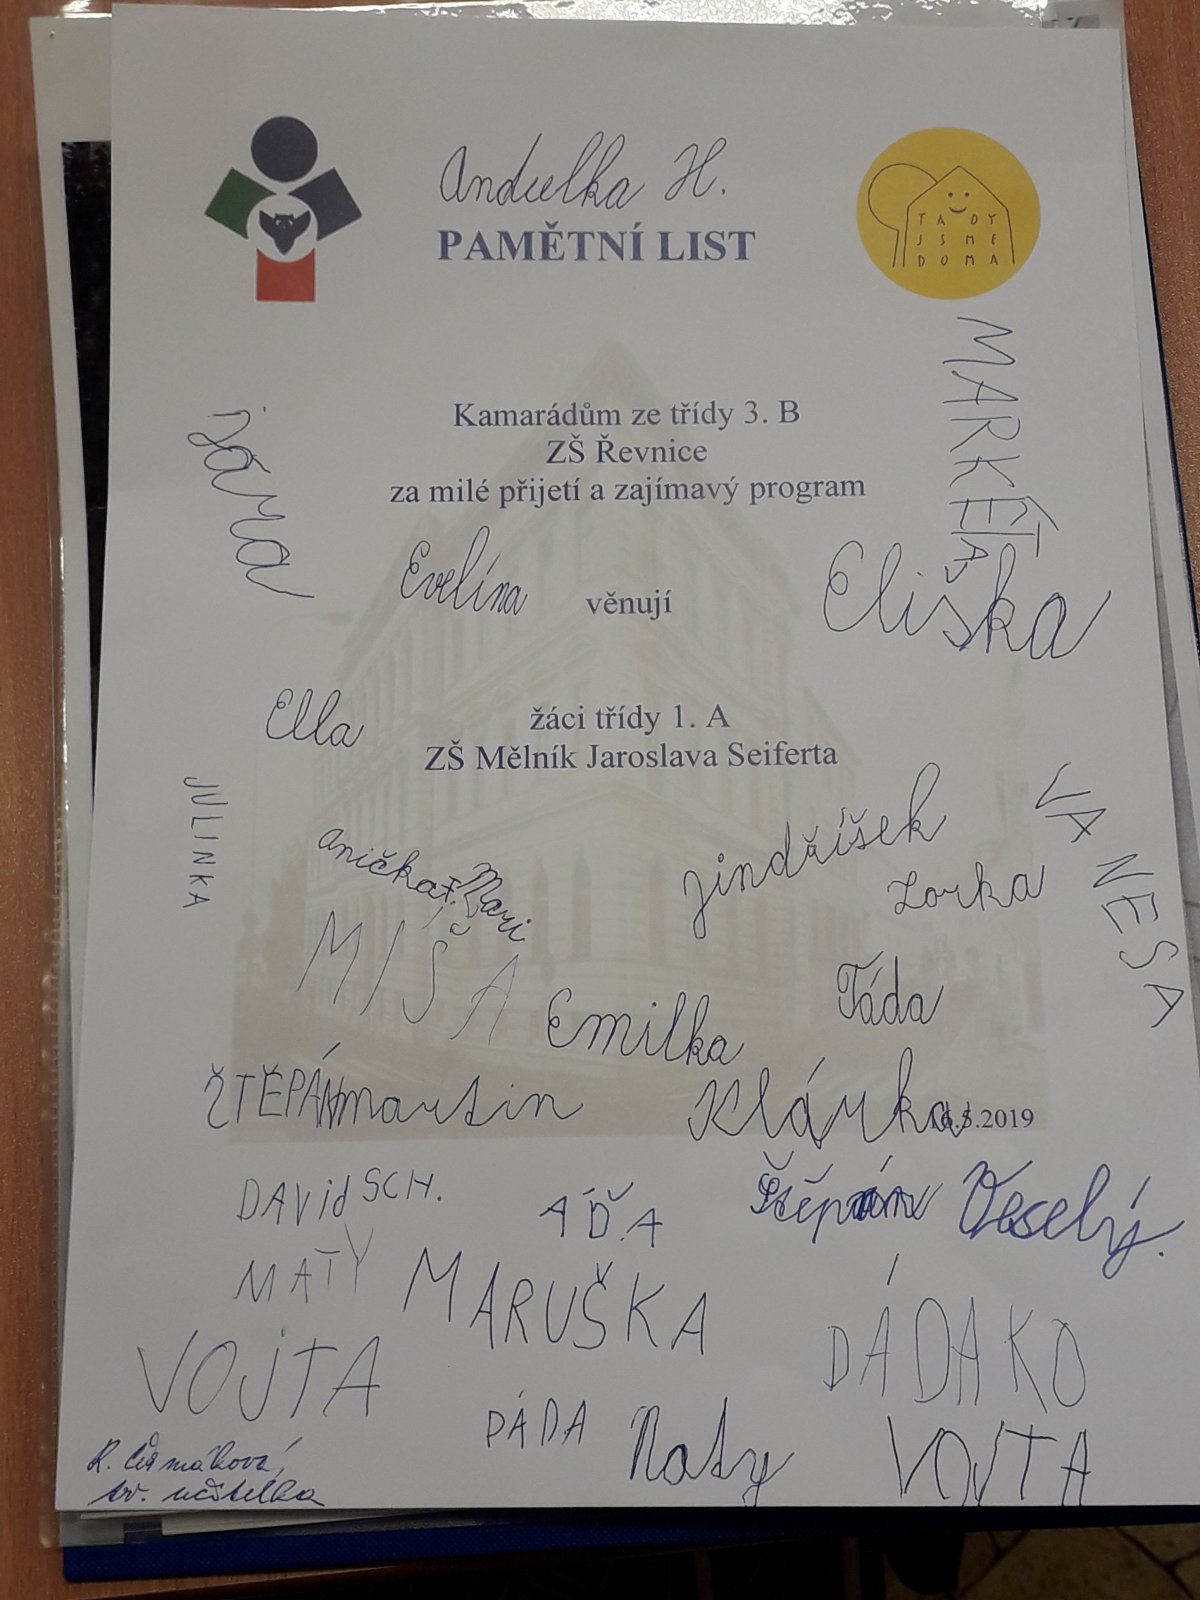 Andulka H.
PAMĚTNÍ LIST
TADY
JSME
DOMA
MARKÉTA
Kamarádům ze třídy 3. B
ZŠ Řevnice
za milé přijetí a zajímavý program
Bára
Evelína
věnují
Eliška
Ella
žáci třídy 1. A
ZŠ Mělník Jaroslava Seiferta
JULINKA
VANESA
anička F.
Mari
Jindříšek
Lorka
MÍŠA
Emilka
Táda
ŠTĚPÁN
martin
Klárka
16.5.2019
DAViD SCH.
ÁĎA
Štěpán Veselý.
MATY
MARUŠKA
DÁDA KO
VOJTA
PÁDA
Naty
VOJTA
tř. učitelka